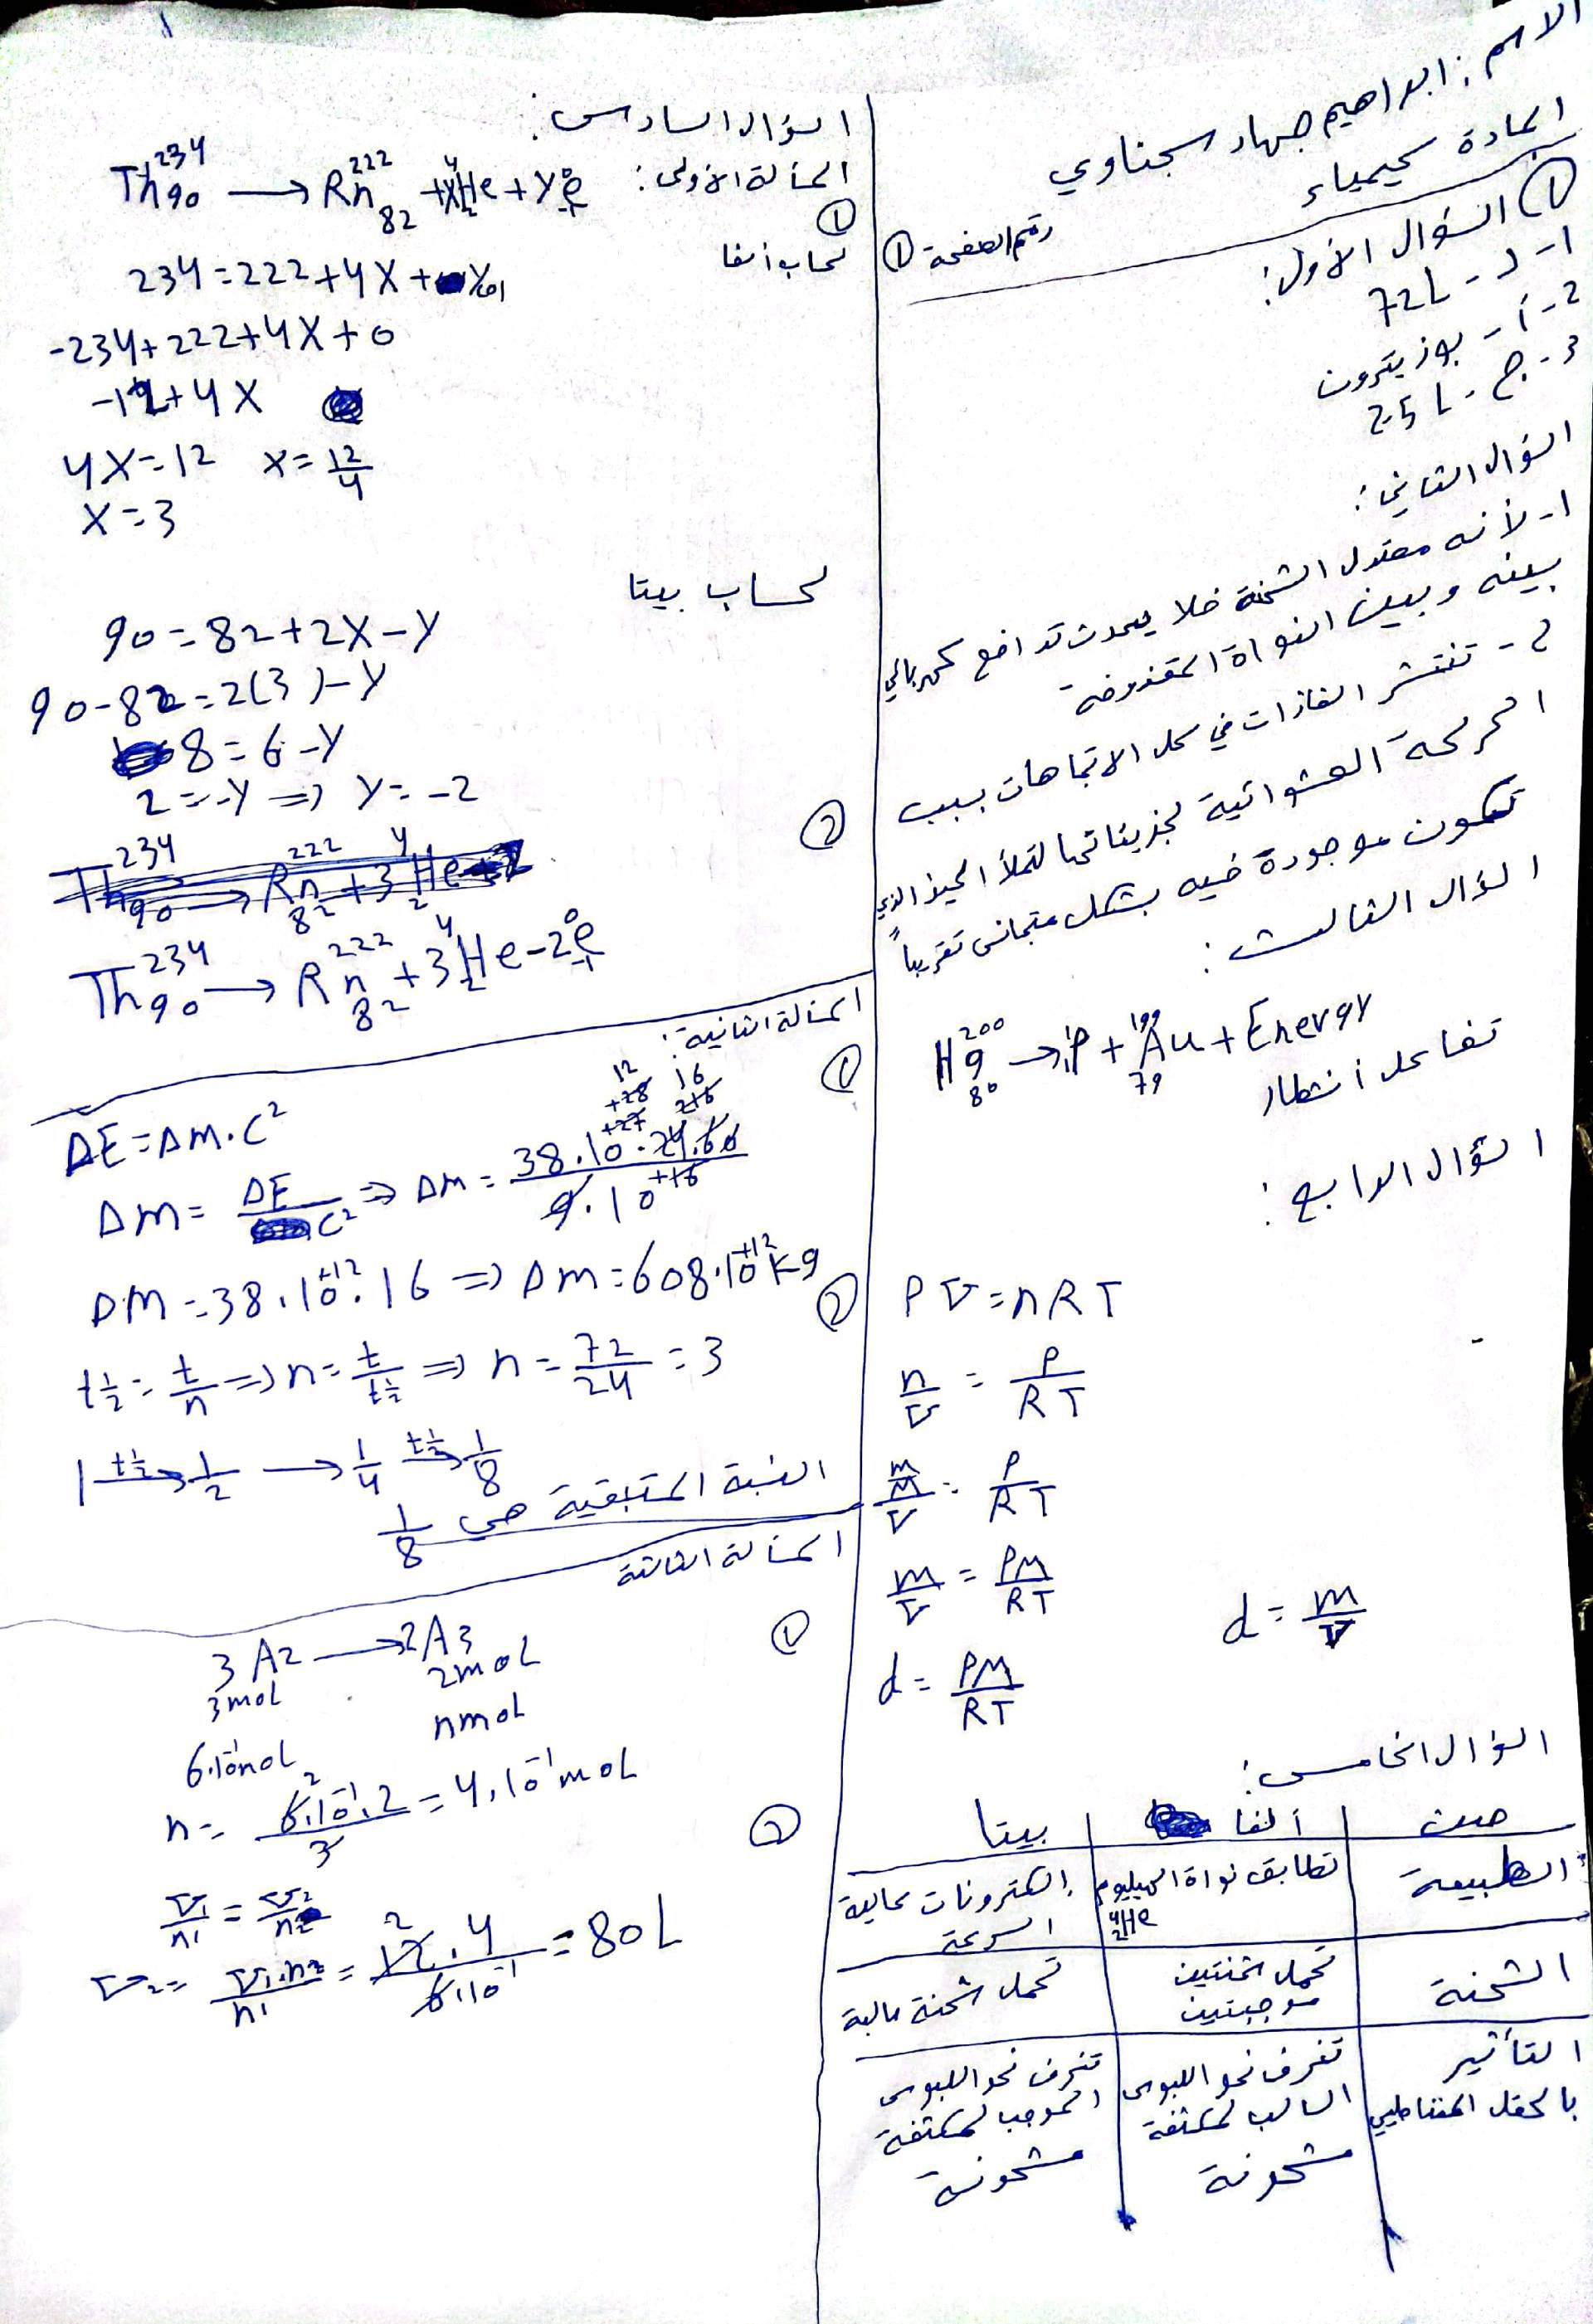 الاسم: ابراهيم جهاد سجناوي
المادة كيمياء
رقم الصفحة ①
① السؤال الأول:
1- د - 72L
2- أ - بوزيترون
3- ج - 2.5 L
السؤال الثاني:
1- لأنه معتدل الشحنة فلا يحدث تدافع كهربائي
بينه وبين النواة المقذوفة
2- تنتشر الغازات في كل الاتجاهات بسبب
الحركة العشوائية لجزيئاتها لتملأ الحيز الذي
تكون موجودة فيه بشكل متجانس تقريباً
السؤال الثالث:
²⁰⁰₈₀Hg → ¹₁P + ¹⁹⁹₇₉Au + Energy
تفاعل انشطار
السؤال الرابع:
PV = nRT
n/V = P/RT
m/M/V = P/RT
m/V = PM/RT
d = m/V
d = PM/RT
السؤال الخامس:
حيث | ألفا | بيتا
الطبيعة | تطابق نواة الهيليوم ⁴₂He | إلكترونات عالية السرعة
الشحنة | تحمل شحنتين موجبتين | تحمل شحنة سالبة
التأثير بالحقل المغناطيسي | تنحرف نحو اللبوس السالب لمكثفة مشحونة | تنحرف نحو اللبوس الموجب لمكثفة مشحونة
السؤال السادس:
المسألة الأولى:
①
Th²³⁴₉₀ → Rn²²²₈₂ + X⁴₂He + Y⁰₋₁e
لحساب ألفا
234 = 222 + 4X + Y(0)
-234 + 222 + 4X + 0
-12 + 4X
4X = 12 X = 12/4
X = 3
لحساب بيتا
90 = 82 + 2X - Y
90 - 82 = 2(3) - Y
8 = 6 - Y
2 = -Y ⇒ Y = -2
②
Th²³⁴₉₀ → Rn²²²₈₂ + 3⁴₂He - 2⁰₋₁e
المسألة الثانية:
①
ΔE = Δm.C²
Δm = ΔE/C² ⇒ Δm = 38.10⁺²⁷.24.60/9.10⁺¹⁶
Δm = 38.10⁺¹².16 ⇒ Δm = 608.10⁺¹² kg
②
t½ = t/n ⇒ n = t/t½ ⇒ n = 72/24 = 3
1 →t½ 1/2 → 1/4 →t½ 1/8
النسبة المتبقية هي 1/8
المسألة الثالثة
①
3A2 → 2A3
3mol 2mol
6.10⁻¹mol nmol
n = 6.10⁻¹.2/3 = 4.10⁻¹ mol
②
V1/n1 = V2/n2
V2 = V1.n2/n1 = 12.4/6.10⁻¹ = 80L